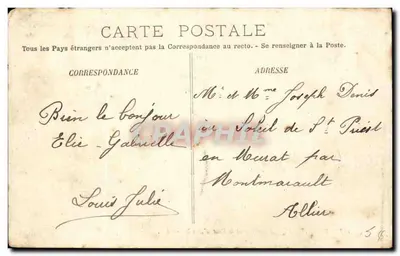 CARTE POSTALE
Tous les Pays étrangers n'acceptent pas la Correspondance au recto. - Se renseigner à la Poste.
CORRESPONDANCE
Bien le bonjour
Elie Gabrielle
Louis Julie
ADRESSE
Mr et Mme Joseph Denis
au Soleil de St Priest
en Murat par
Montmarault
Allier